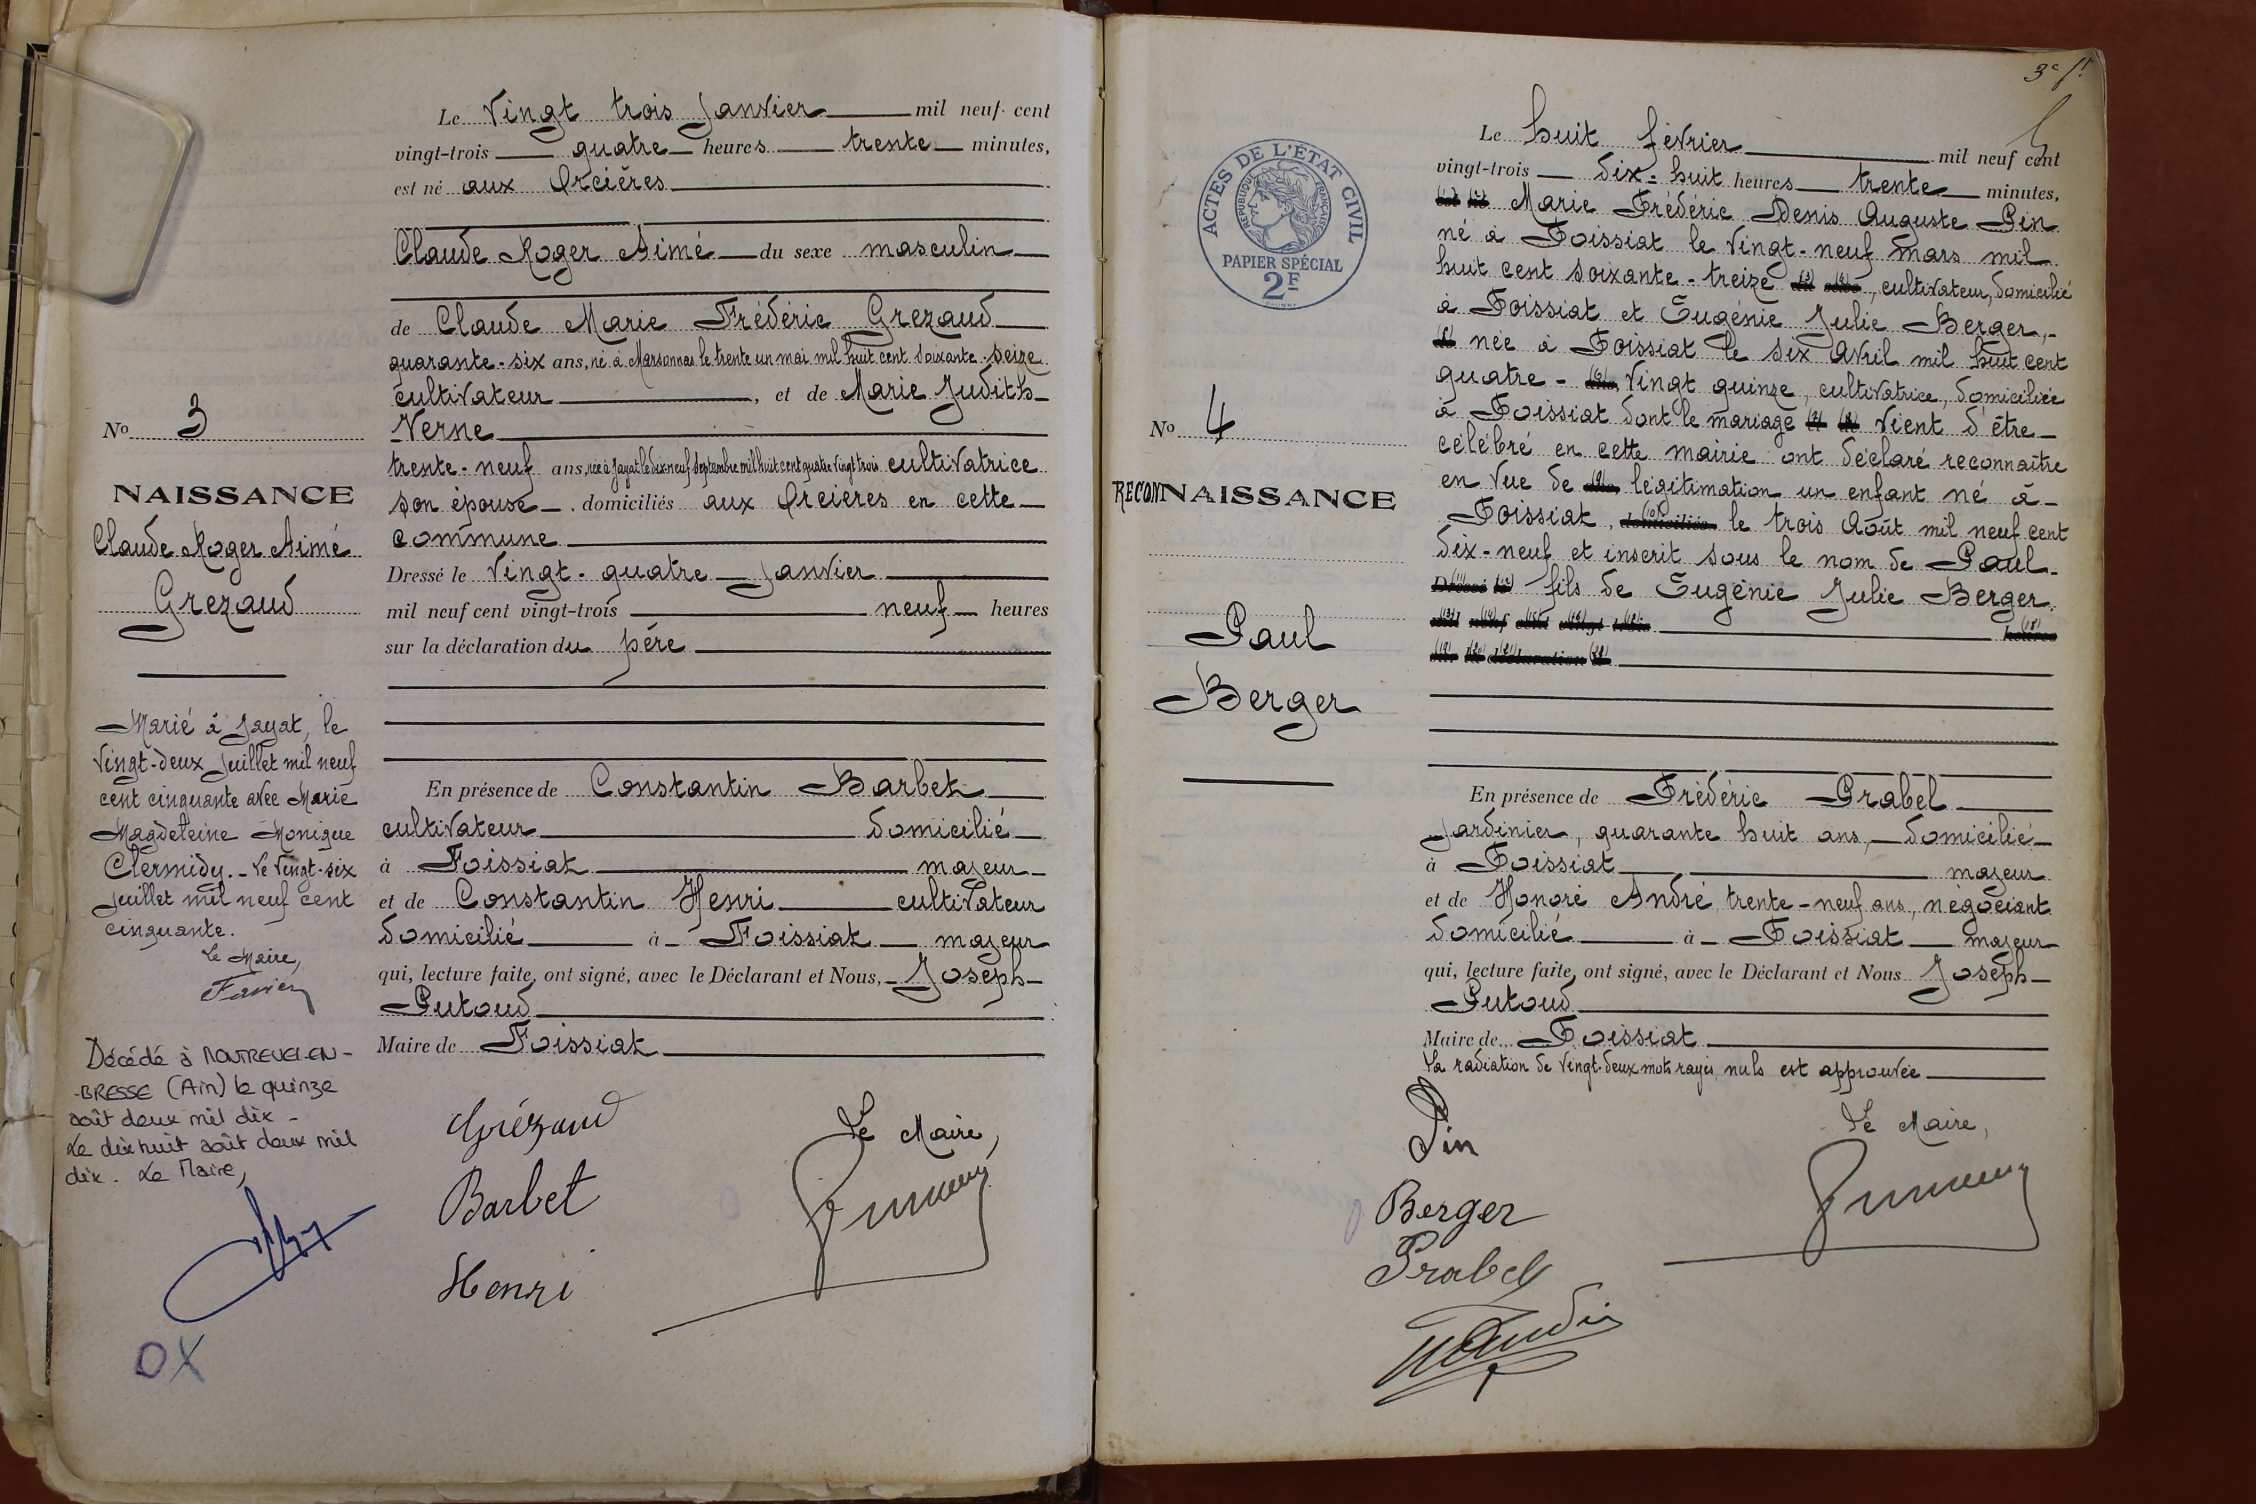 Le Vingt trois Janvier mil neuf cent
vingt-trois quatre heures trente minutes,
est né aux Orcières
Claude Roger Aimé du sexe masculin
de Claude Marie Frédéric Grezaud
quarante-six ans, né à Marsonnas le trente un mai mil huit cent soixante-seize
cultivateur, et de Marie Judith
Verne
trente-neuf ans, née à Jayat le dix-neuf Septembre mil huit cent quatre vingt trois cultivatrice
son épouse. domiciliés aux Orcières en cette
commune
Dressé le Vingt-quatre Janvier
mil neuf cent vingt-trois neuf heures
sur la déclaration du père
En présence de Constantin Barbet
cultivateur domicilié
à Foissiat majeur
et de Constantin Henri cultivateur
domicilié à Foissiat majeur
qui, lecture faite, ont signé, avec le Déclarant et Nous, Joseph
Putoud
Maire de Foissiat
Grézaud
Le Maire,
Barbet
Henri
No 3
NAISSANCE
Claude Roger Aimé
Grezaud
Marié à Jayat, le
vingt-deux juillet mil neuf
cent cinquante avec Marie
Magdeleine Monique
Clermidy.- Le vingt-six
juillet mil neuf cent
cinquante.
Le Maire,
Favier
Décédé à MONTREVEL-EN-
-BRESSE (Ain) le quinze
août deux mil dix -
Le dix huit août deux mil
dix. Le Maire,
OX
3e ft
ACTES DE L'ÉTAT CIVIL
RÉPUBLIQUE FRANÇAISE
PAPIER SPÉCIAL
2F
No 4
RECONNAISSANCE
Paul
Berger
Le huit février mil neuf cent
vingt-trois dix-huit heures trente minutes,
Marie Frédéric Denis Auguste Pin
né à Foissiat le vingt-neuf mars mil
huit cent soixante-treize, cultivateur, domicilié
à Foissiat et Eugénie Julie Berger,
née à Foissiat le six Avril mil huit cent
quatre-vingt quinze, cultivatrice, domiciliée
à Foissiat dont le mariage vient d'être
célébré en cette mairie ont déclaré reconnaître
en vue de légitimation un enfant né à
Foissiat, le trois Août mil neuf cent
dix-neuf et inscrit sous le nom de Paul
fils de Eugénie Julie Berger.
En présence de Frédéric Prabel
Jardinier, quarante huit ans, domicilié
à Foissiat majeur
et de Honoré André, trente-neuf ans, négociant
domicilié à Foissiat majeur
qui, lecture faite, ont signé, avec le Déclarant et Nous Joseph
Putoud
Maire de Foissiat
La radiation de vingt-deux mots rayés nuls est approuvée
Pin
Le Maire,
Berger
Prabel